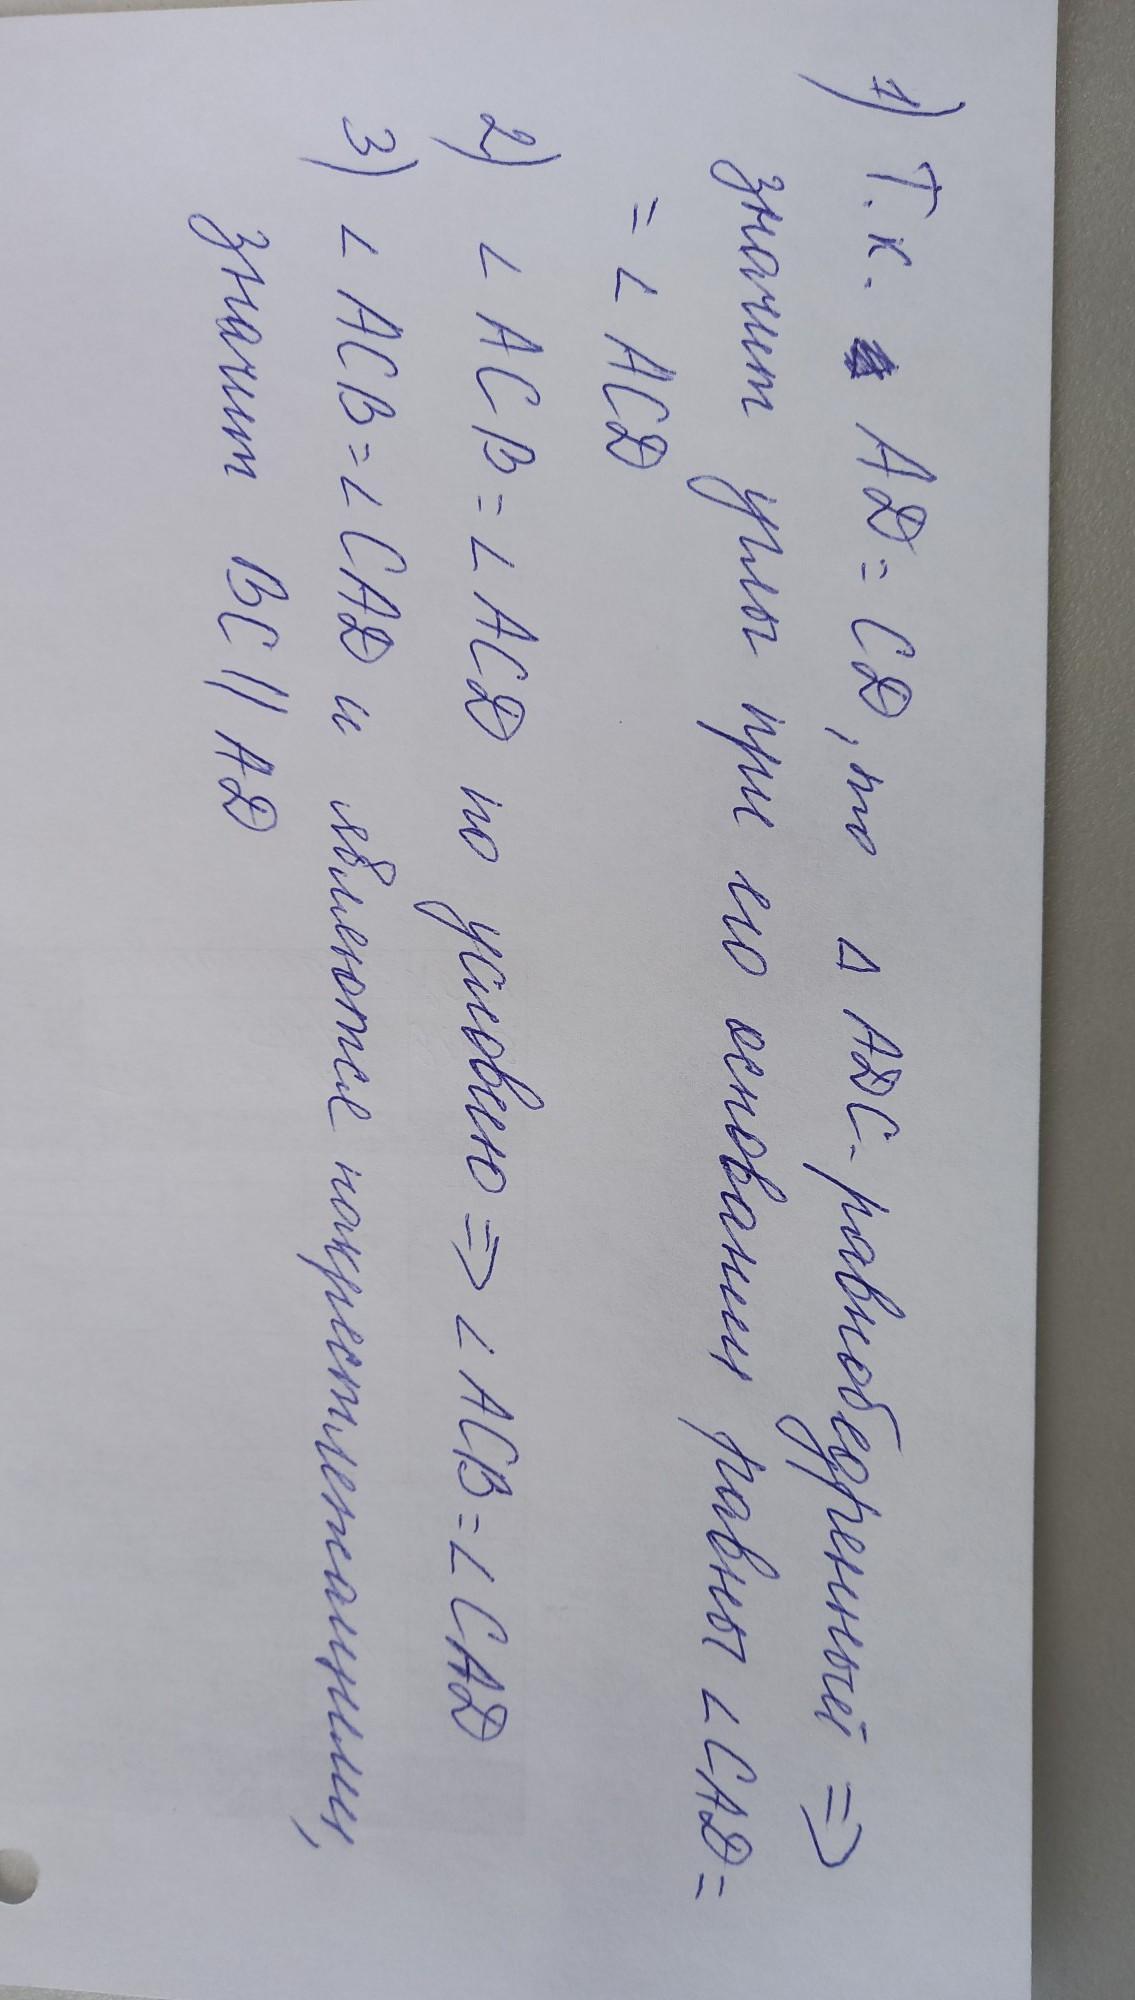 1) Т.к. AD=CD, то △ ADC - равнобедренный ⇒
значит углы при его основании равны ∠CAD=
= ∠ ACD
2) ∠ ACB = ∠ ACD по условию ⇒ ∠ ACB = ∠ CAD
3) ∠ ACB = ∠ CAD и являются накрестлежащими,
значит BC || AD